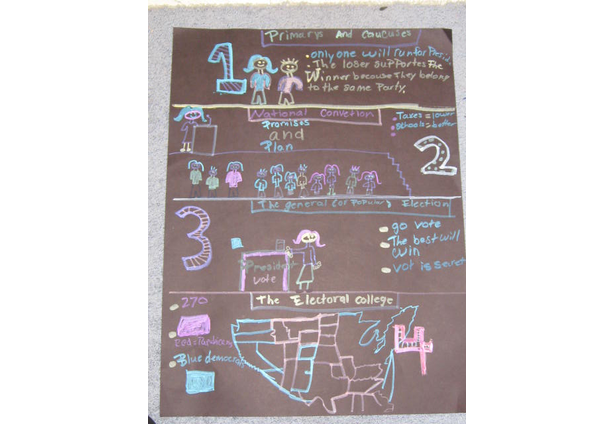 Primarys And Caucuses
1
• only one will run for Presid.
• The loser supportes The
Winner because They belong
to the same Party.
National Convetion
Promises
and
Plan
Taxes = lower
Schools = better
2
The general (or popular) Election
3
President
vote
go vote
The best will
win
vot is secret
The Electoral College
270
Blue democrat
4